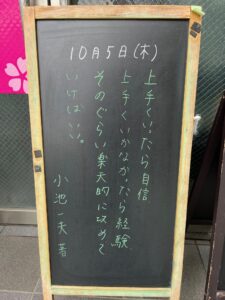 10月5日(木)
上手くいったら自信
上手くいかなかったら経験
そのぐらい楽天的に攻めて
いけばいい。
小池一夫著